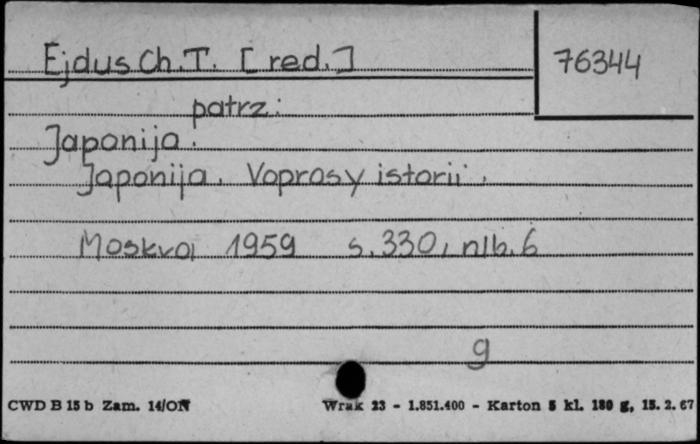 Ejdus Ch. T. [red.]
76344
patrz:
Japonija.
Japonija. Voprosy istorii.
Moskva 1959 s. 330, nlb. 6
g
CWD B 15 b Zam. 14/ON Wrak 23 - 1.851.400 - Karton 5 kl. 180 g, 15. 2. 67